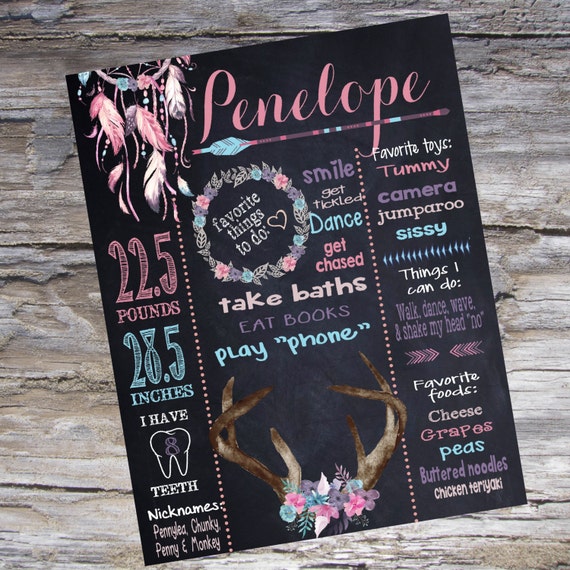 Penelope
22.5
POUNDS
28.5
INCHES
I HAVE
8
TEETH
Nicknames:
Pennylea, Chunky,
Penny & Monkey
favorite
things
to do:
smile
get
tickled
Dance
get
chased
take baths
EAT BOOKS
play "phone"
Favorite toys:
Tummy
camera
jumparoo
sissy
Things I
can do:
Walk, dance, wave,
& shake my head "no"
Favorite
foods:
Cheese
Grapes
peas
Buttered noodles
Chicken teriyaki